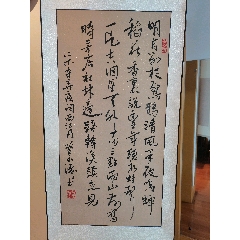 明月别枝驚鵲清風半夜鳴蟬
稻花香裏説豐年聽取蛙聲
一片七八個星天外兩三點雨山前舊
時茅店社林邊路轉溪橋忽見
西江月